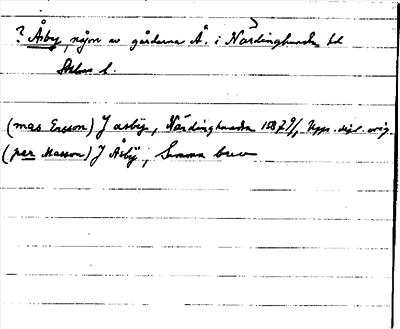 ? Åsby, någon av gårdarna Å. i Närdinghundra hd
Sthlms l.
(mas Ersson) J asby, Närdinghundra 1587 9/1, Upps. dipl. orig.
(per Masson) J Åsbÿ, Samma brev